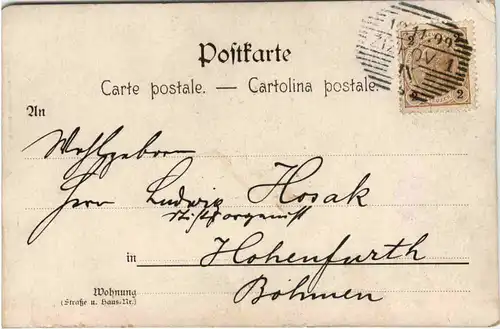 Postkarte
Carte postale. — Cartolina postale.
An
Wohlgeboren
Herrn Ludwig Hosak
Stiftsorganist
in Hohenfurth
Wohnung
(Straße u. Haus-Nr.)
Böhmen
2